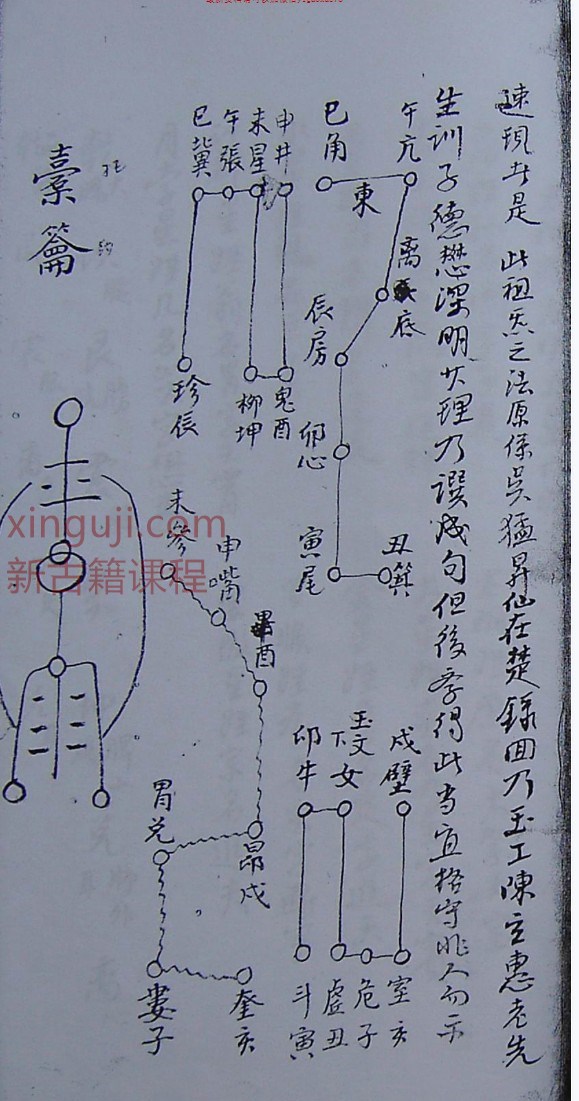 速現者是 此祖炁之法原係吳猛昇仙在楚錄回乃玉工陳立惠老先
生訓子德懋深明其理乃譔成句但後學得此当宜格守非人勿示
午亢
巳角
東
离底
辰房
卯心
寅尾
丑箕
申井
未星
午張
巳翼
珍辰
柳坤
鬼酉
未參
申嘴
畢酉
昴戌
胃兑
婁子
奎亥
戌壁
玉文女
卯牛
室亥
危子
虛丑
斗寅
橐
籥
xinguji.com
新古籍课程